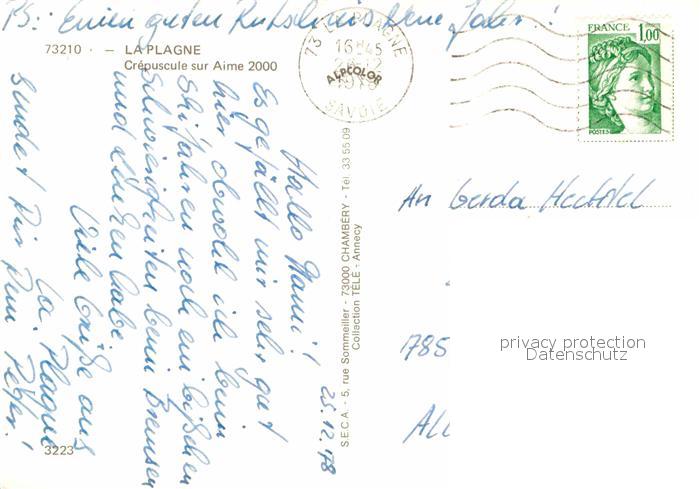 PS: Einen guten Rutsch ins Neue Jahr!
73210 - LA PLAGNE
Crépuscule sur Aime 2000
73 LA PLAGNE
16 H 45
SAVOIE
ALPCOLOR
FRANCE 1,00
POSTES
25.12.78
Hallo Mami!
Es gefällt mir sehr gut
hier obwohl ich beim
Skifahren noch ein bißchen
Schwierigkeiten beim Bremsen
und Lenken habe.
Viele Grüße aus
La Plagne
sendet Dir Dein Peter!
3223
S.E.C.A. - 5, rue Sommeiller - 73000 CHAMBÉRY - Tél. 33 55 09
Collection TÉLÉ - Annecy
An Gerda
785
privacy protection
Datenschutz